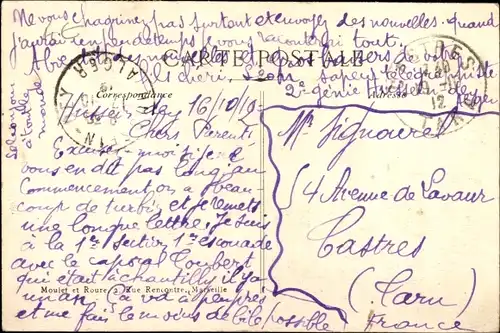 Ne vous chagrinez pas surtout et envoyez des nouvelles. quand
j'aurai un peu de temps je vous raconterai tout.
CARTE POSTALE
Correspondance
Adresse
Léon sapeur télégraphiste
2e génie Hussein-dey
Alger
le bonjour
à toute le
monde
Hussein Dey 16/10/12
Chers Parents
Excusez-moi si je
vous en dit pas long au
Commencement, on a beau-
coup de turbin et je remets
une longue lettre. Je suis
à la 1re section 1re escouade
avec le caporal Loubert
qui était à Chantilly il y a
un an. Ca va à peu près
et me fais le moins de bile possible
Mr Signouret
54 Avenue de Lavaur
Castres
(Tarn)
France
Moulet et Route, 2 Rue Rencontre, Marseille